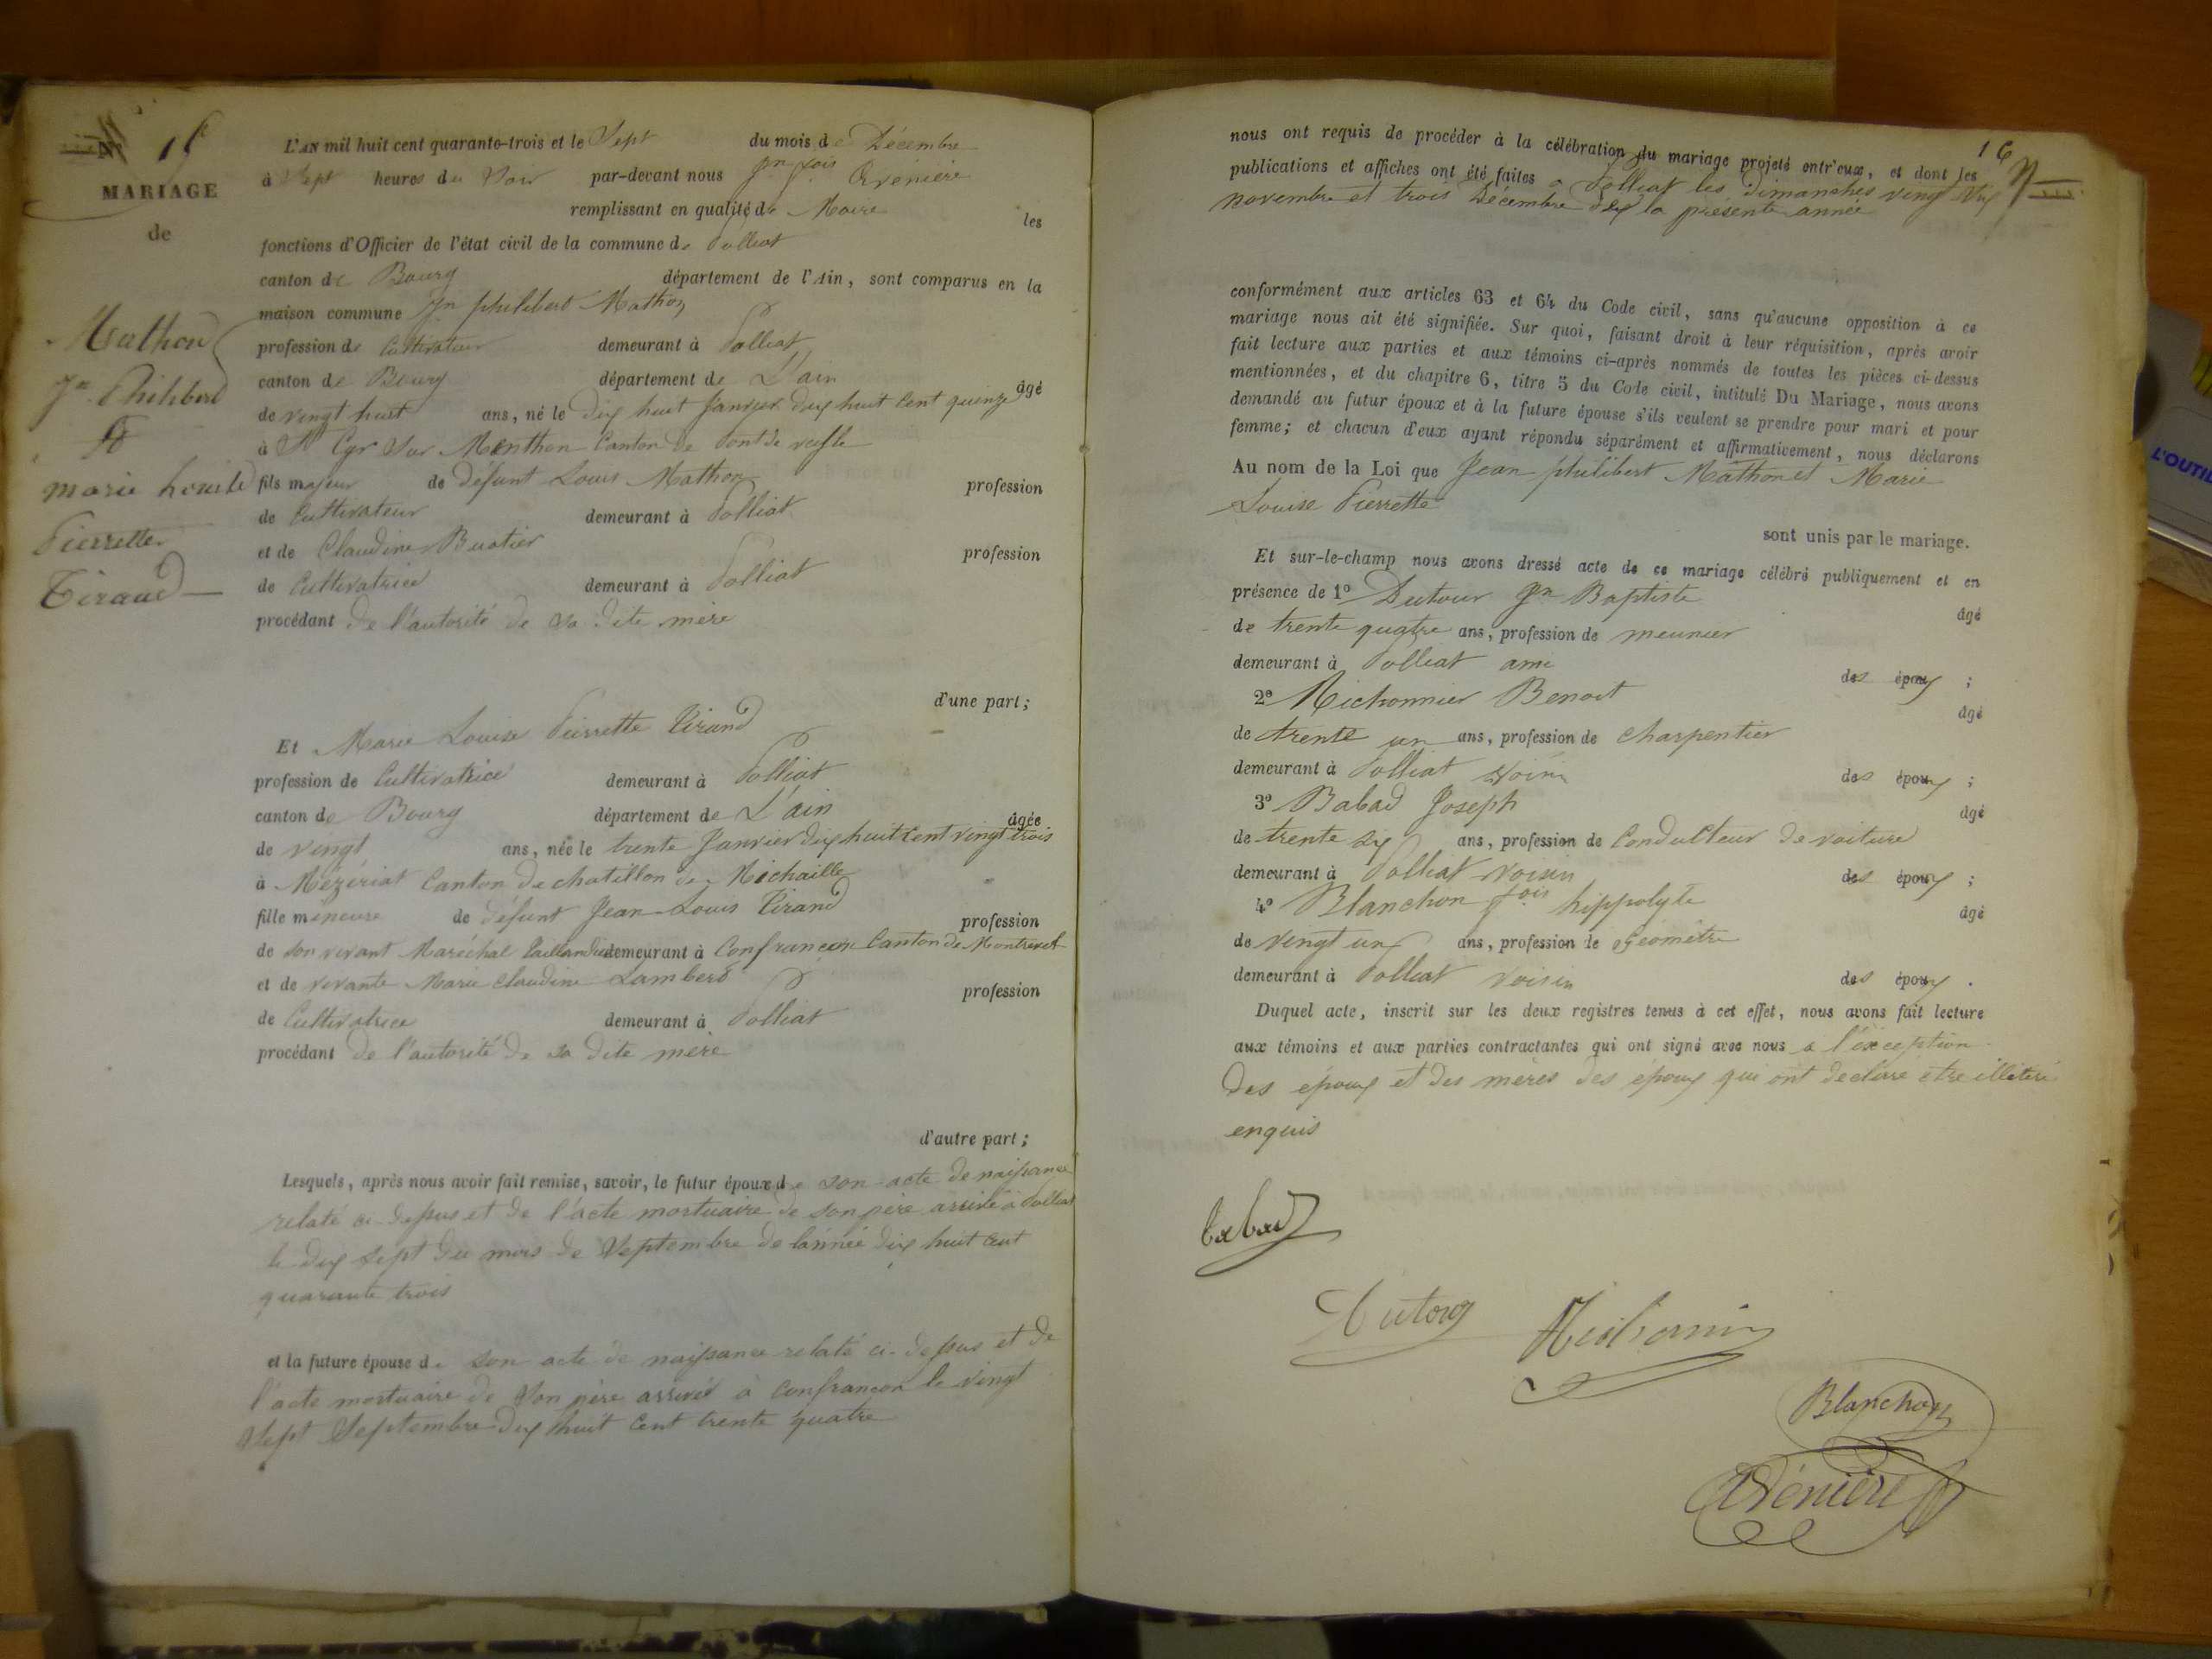 15
MARIAGE
de
Mathon
Jn Philibert
et
marie Louise
Pierrette
Tirand
L'AN mil huit cent quarante-trois et le Sept du mois de Décembre
à Sept heures du Soir par-devant nous Jn fois Avénière
remplissant en qualité de Maire les
fonctions d'Officier de l'état civil de la commune de Polliat
canton de Bourg département de l'Ain, sont comparus en la
maison commune Jn philibert Mathon
profession de Cultivateur demeurant à Polliat
canton de Bourg département de L'ain âgé
de vingt huit ans, né le dix huit Janvier dix huit Cent quinze
à St Cyr Sur Menthon Canton de Pont de vesle
fils majeur de défunt Louis Mathon profession
de Cultivateur demeurant à Polliat
et de Claudine Buatier profession
de Cultivatrice demeurant à Polliat
procédant de l'autorité de sa dite mère
d'une part;
Et Marie Louise Pierrette Tirand
profession de Cultivatrice demeurant à Polliat
canton de Bourg département de L'ain âgée
de vingt ans, née le trente Janvier dix huit Cent vingt trois
à Mézériat Canton de chatillon de Michaille
fille mineure de défunt Jean Louis Tirand profession
de son vivant Maréchal taillandier demeurant à Confrançon Canton de Montrevel
et de vivante Marie Claudine Lambert profession
de Cultivatrice demeurant à Polliat
procédant de l'autorité de sa dite mère
d'autre part;
Lesquels, après nous avoir fait remise, savoir, le futur époux de son acte de naissance
relaté ci-dessus et de l'acte mortuaire de son père arrivé à Polliat
le dix sept du mois de Septembre de l'année dix huit cent
quarante trois
et la future épouse de son acte de naissance relaté ci-dessus et de
l'acte mortuaire de Son père arrivé à Confrançon le vingt
Sept Septembre dix huit Cent trente quatre
16
nous ont requis de procéder à la célébration du mariage projeté entr'eux, et dont les
publications et affiches ont été faites à Polliat les dimanches vingt Six
novembre et trois Décembre de la présente année
conformément aux articles 63 et 64 du Code civil, sans qu'aucune opposition à ce
mariage nous ait été signifiée. Sur quoi, faisant droit à leur réquisition, après avoir
fait lecture aux parties et aux témoins ci-après nommés de toutes les pièces ci-dessus
mentionnées, et du chapitre 6, titre 5 du Code civil, intitulé Du Mariage, nous avons
demandé au futur époux et à la future épouse s'ils veulent se prendre pour mari et pour
femme; et chacun d'eux ayant répondu séparément et affirmativement, nous déclarons
Au nom de la Loi que Jean philibert Mathon et Marie
Louise Pierrette
sont unis par le mariage.
Et sur-le-champ nous avons dressé acte de ce mariage célébré publiquement et en
présence de 1º Dutour Jn Baptiste âgé
de trente quatre ans, profession de meunier
demeurant à Polliat ami des époux;
2º Michonnier Benoit âgé
de trente un ans, profession de Charpentier
demeurant à Polliat des époux;
3º Babad Joseph âgé
de trente six ans, profession de Conducteur de voiture
demeurant à Polliat voisin des époux;
4º Blanchon fois hippolyte âgé
de vingt un ans, profession de géomètre
demeurant à Polliat voisin des époux.
Duquel acte, inscrit sur les deux registres tenus à cet effet, nous avons fait lecture
aux témoins et aux parties contractantes qui ont signé avec nous a l'exception
des époux et des mères des époux qui ont déclaré etre illitéré
enquis
babad
Dutour
Michonnier
Blanchon
Avénière
L'OUTIL